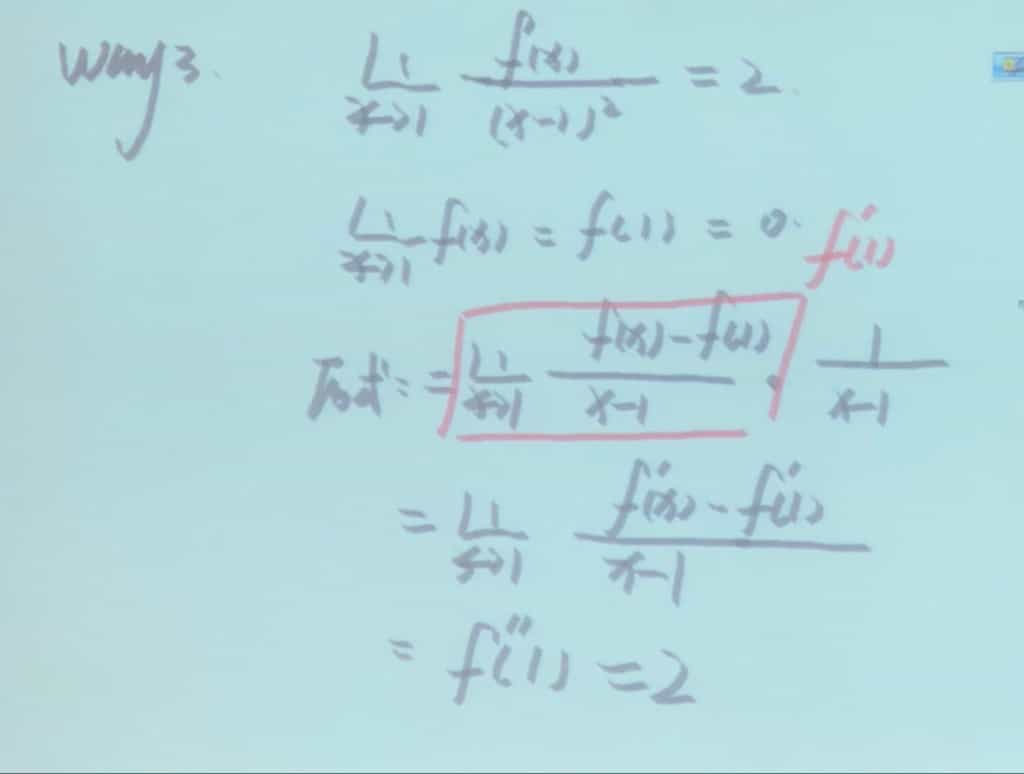 Way 3.
lim x→1 f(x)/(x-1)² = 2.
lim x→1 f(x) = f(1) = 0. f'(1)
原式: = lim x→1 (f(x)-f(1))/(x-1) · 1/(x-1)
= lim x→1 (f'(x)-f'(1))/(x-1)
= f''(1) = 2